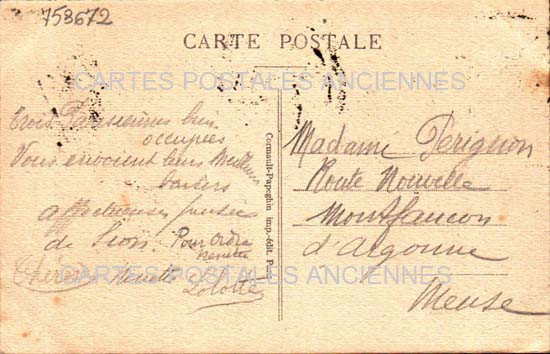 753672
CARTE POSTALE
CARTES POSTALES ANCIENNES
Trois Parisiennes bien
occupées
Vous envoient leurs Meilleurs
baisers
affectueuses pensées
de Lion. Pour ordre
Nénette
Thérèse Nénette Lolotte
Cormault-Papeghin imp.-édit. Paris
Madame Perignon
Route Nouvelle
Montfaucon
d'Argonne
Meuse
CARTES POSTALES ANCIENNES